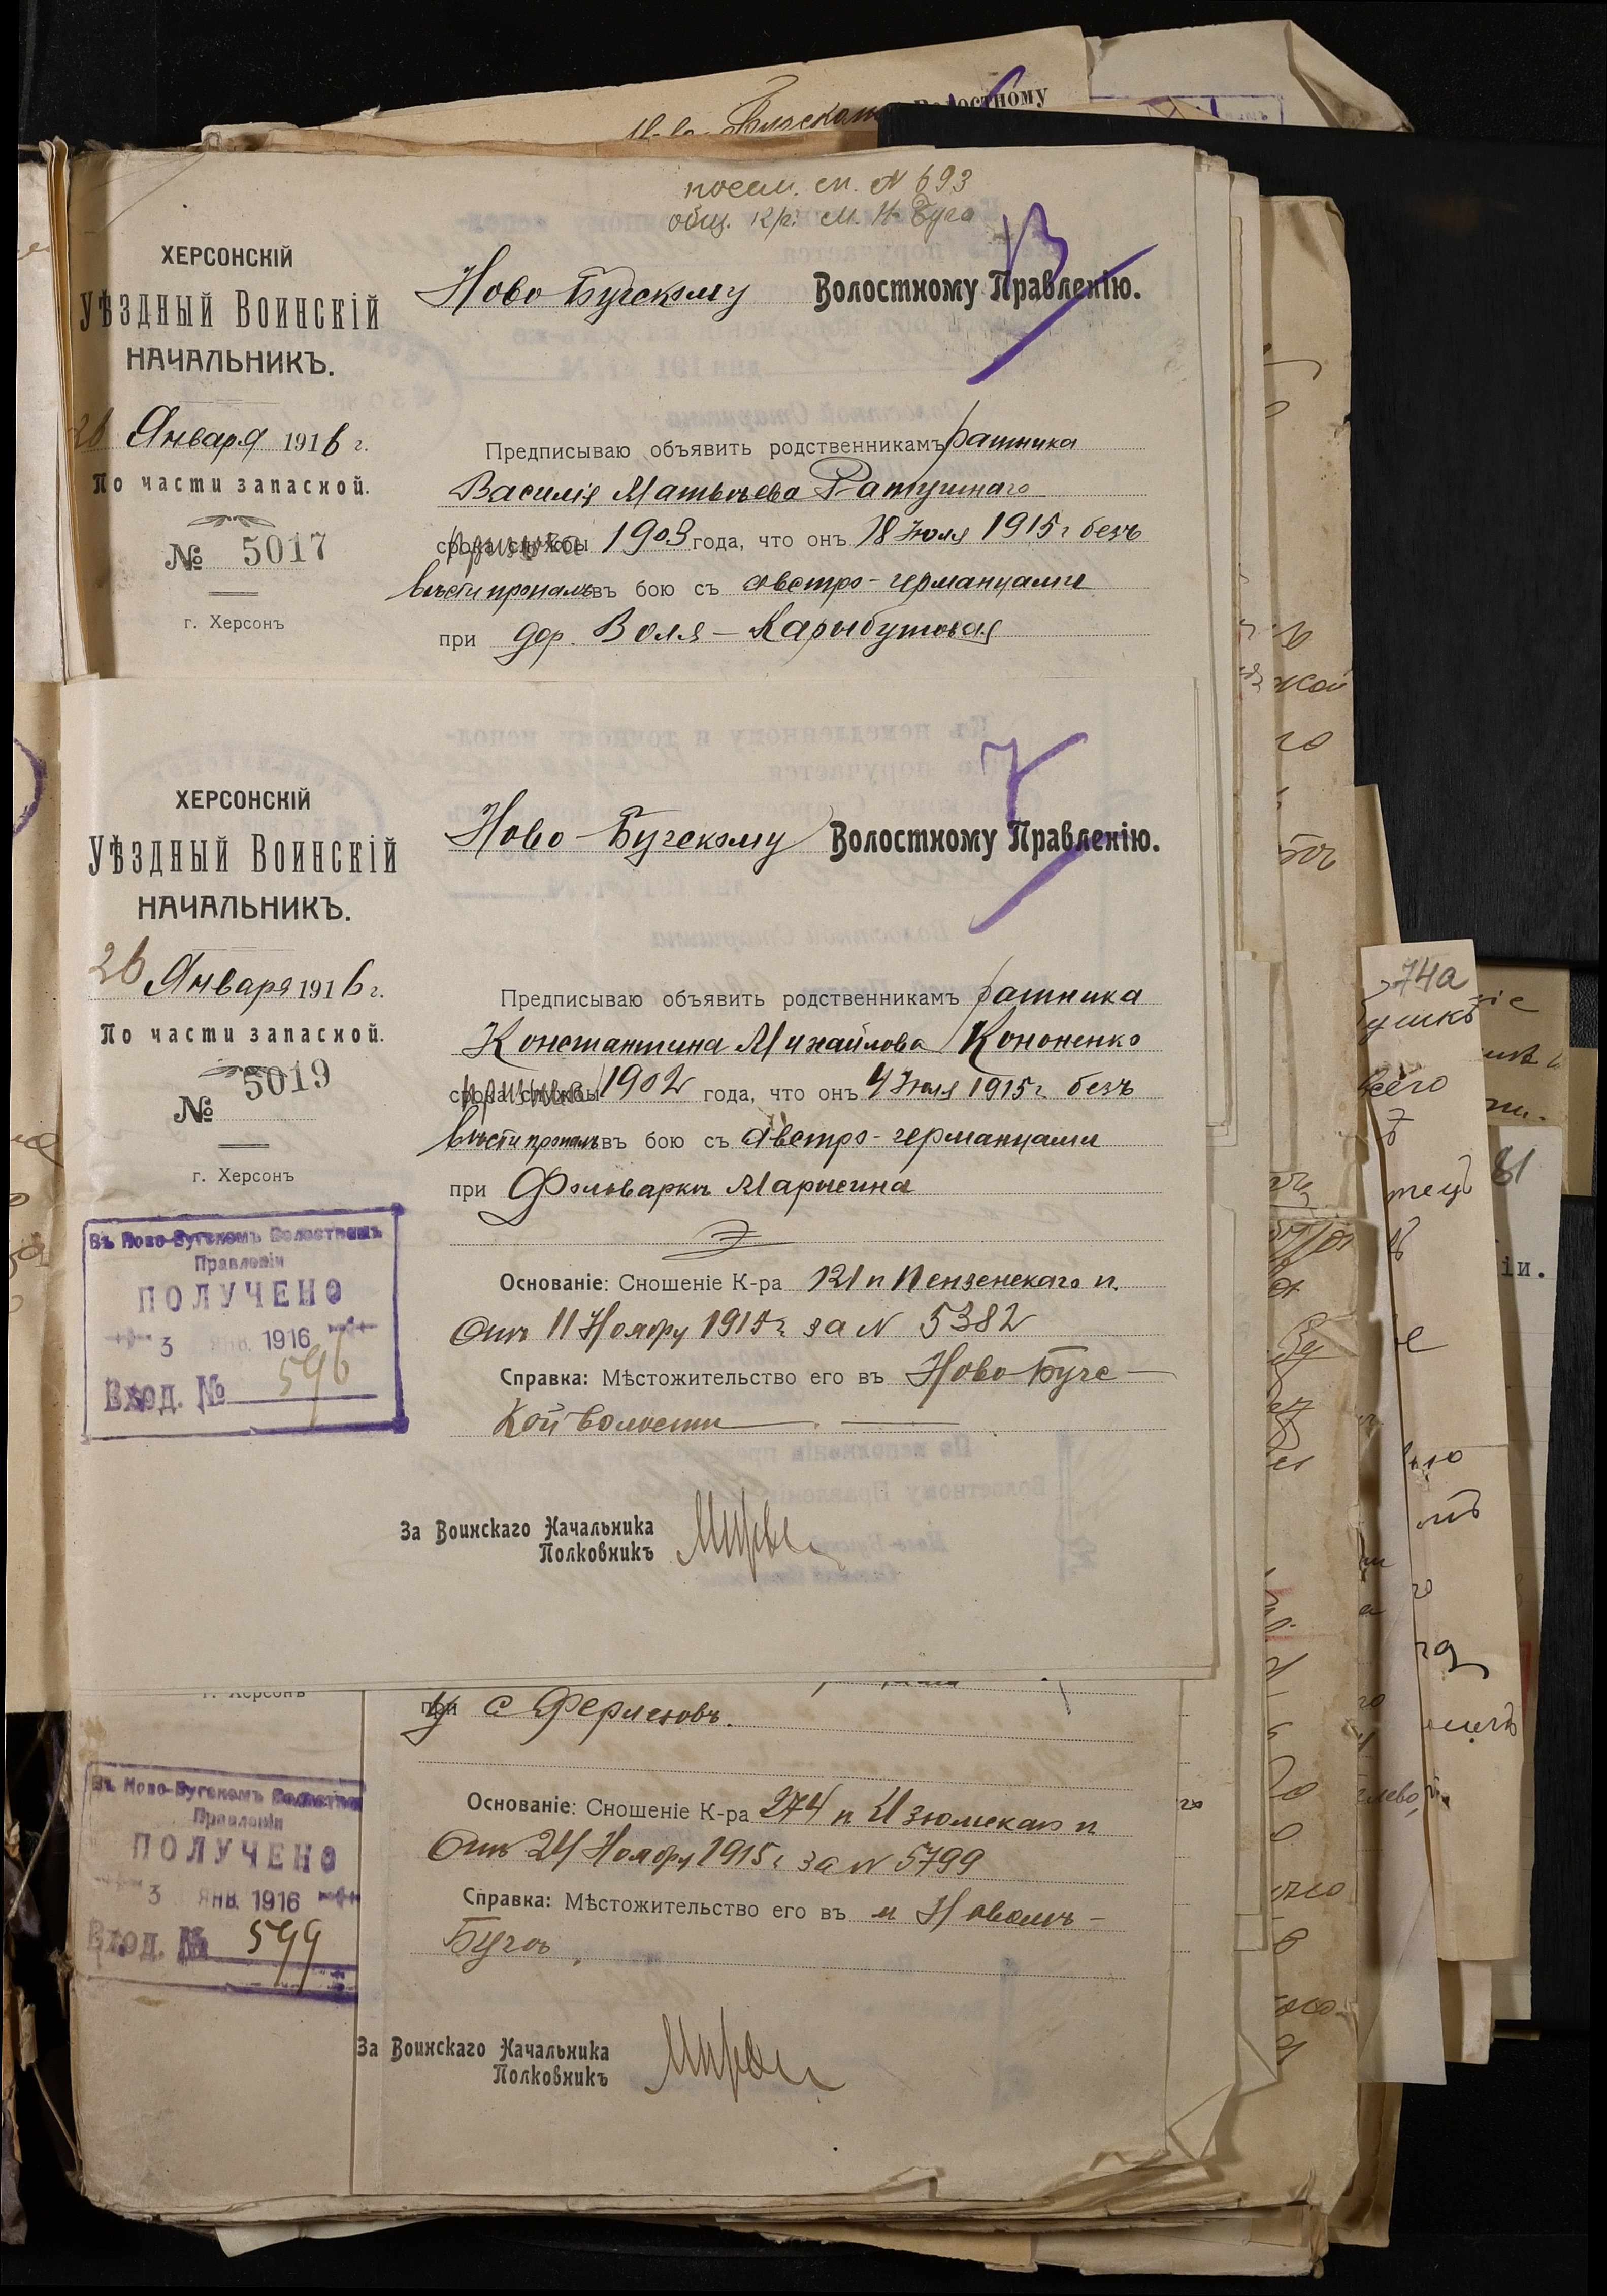 Волостному
посем. сп. № 693
общ. кр. м. Н-Буга
ХЕРСОНСКІЙ
УѢЗДНЫЙ ВОИНСКІЙ
НАЧАЛЬНИКЪ.
26 Января 1916 г.
По части запасной.
№ 5017
г. Херсонъ
Ново Бугскому Волостному Правленію.
Предписываю объявить родственникамъ ратника
Василія Матвѣева Ратушнаго
срока службы призыва 1903 года, что онъ 18 Іюля 1915 г безъ
вѣсти пропалъ въ бою съ австро-германцами
при дер. Воля-Карыбутовая
ХЕРСОНСКІЙ
УѢЗДНЫЙ ВОИНСКІЙ
НАЧАЛЬНИКЪ.
26 Января 1916 г.
По части запасной.
№ 5019
г. Херсонъ
Ново-Бугскому Волостному Правленію.
Предписываю объявить родственникамъ ратника
Константина Михайлова Кононенко
срока службы призыва 1902 года, что онъ 4 Іюля 1915 г. безъ
вѣсти пропалъ въ бою съ австро-германцами
при Фольваркѣ Марысина
Основаніе: Сношеніе К-ра 121 п Пензенскаго п.
Отъ 11 Ноября 1915 г за № 5382
Справка: Мѣстожительство его въ Ново Бугс-
кой волости
За Воинскаго Начальника
Полковникъ
Въ Ново-Бугскомъ Волостномъ
Правленіи
ПОЛУЧЕНО
3 ЯНВ. 1916
Вход. № 596
г. Херсонъ
при у с Ферлеювъ.
Основаніе: Сношеніе К-ра 274 п Изюмскаго п
Отъ 24 Ноября 1915 г за № 5799
Справка: Мѣстожительство его въ м Новомъ-
Бугѣ
За Воинскаго Начальника
Полковникъ
Въ Ново-Бугскомъ Волостно
Правленіи
ПОЛУЧЕНО
3 ЯНВ. 1916
Вход. № 599
74а
81